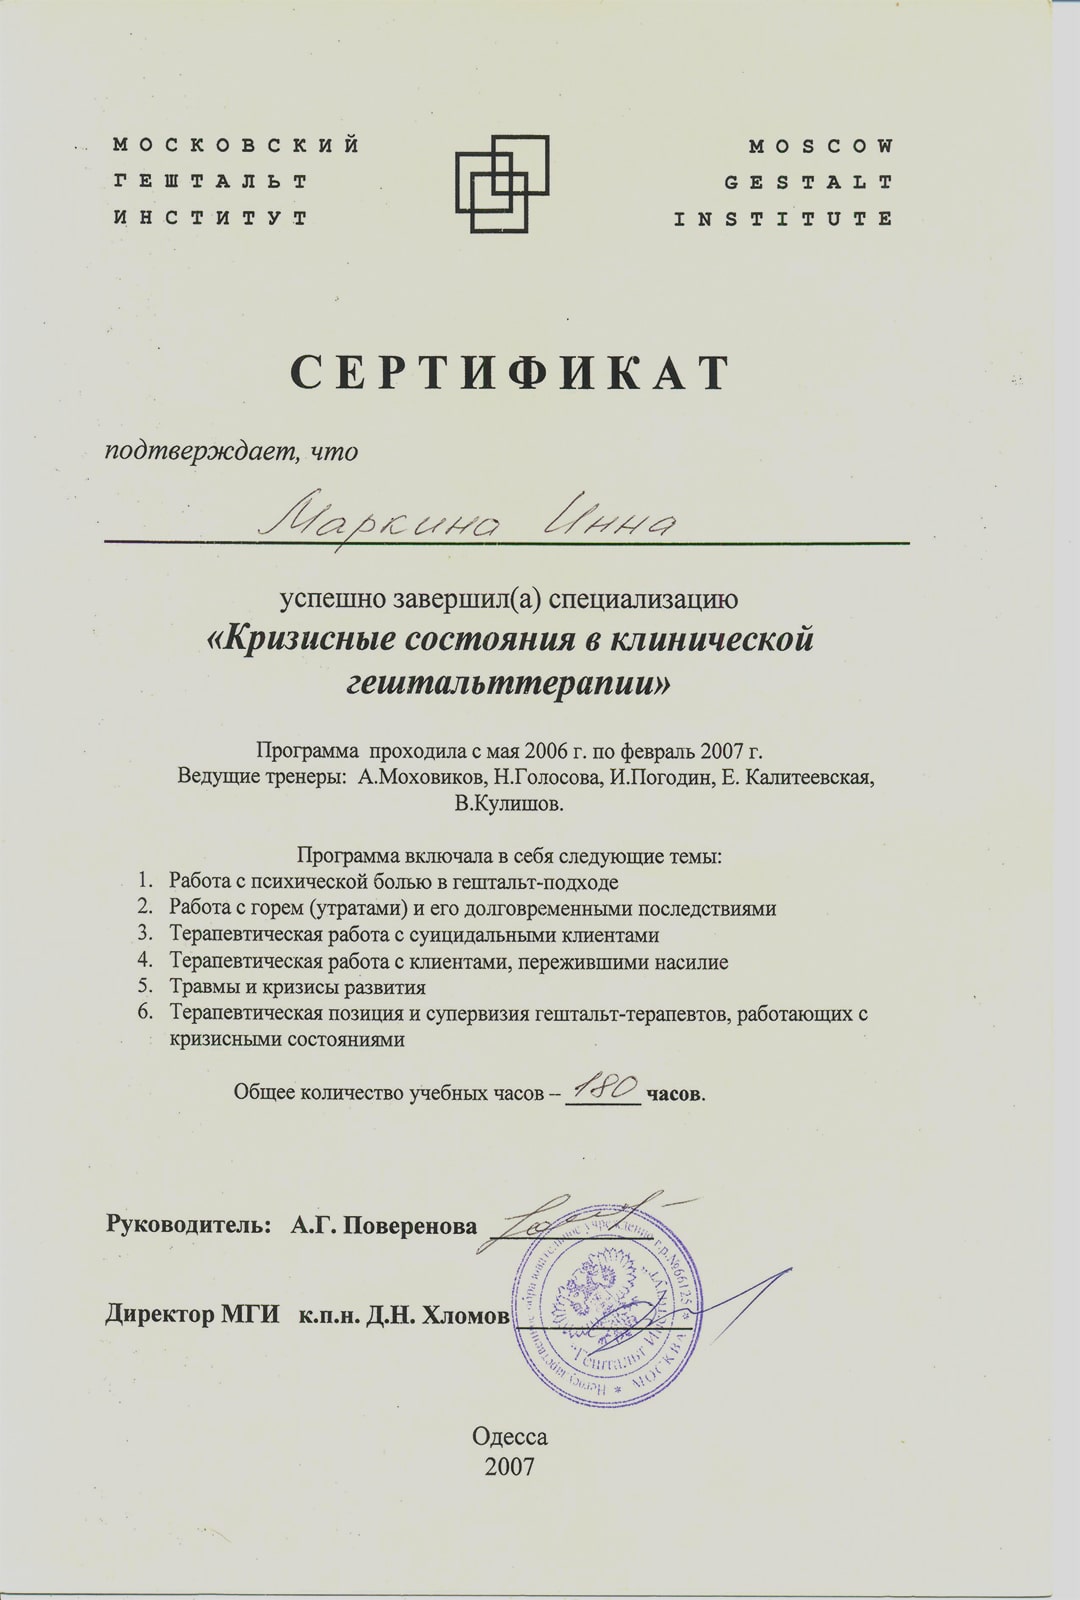 МОСКОВСКИЙ
ГЕШТАЛЬТ
ИНСТИТУТ
MOSCOW
GESTALT
INSTITUTE
СЕРТИФИКАТ
подтверждает, что
Маркина Инна
успешно завершил(а) специализацию
«Кризисные состояния в клинической
гештальттерапии»
Программа проходила с мая 2006 г. по февраль 2007 г.
Ведущие тренеры: А.Моховиков, Н.Голосова, И.Погодин, Е. Калитеевская,
В.Кулишов.
Программа включала в себя следующие темы:
1. Работа с психической болью в гештальт-подходе
2. Работа с горем (утратами) и его долговременными последствиями
3. Терапевтическая работа с суицидальными клиентами
4. Терапевтическая работа с клиентами, пережившими насилие
5. Травмы и кризисы развития
6. Терапевтическая позиция и супервизия гештальт-терапевтов, работающих с
кризисными состояниями
Общее количество учебных часов – 180 часов.
Руководитель: А.Г. Поверенова
Директор МГИ к.п.н. Д.Н. Хломов
учреждение г.р.№66125 * МОСКВА *
"Гештальт
Одесса
2007